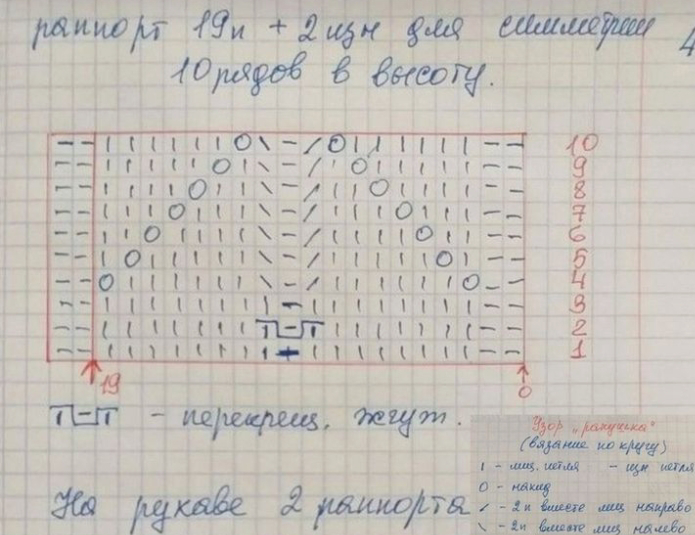 раппорт 19п + 2изн для симметрии 4
10 рядов в высоту.
- - | | | | | | O | \ - / O | | | | | | - - 10
- - | | | | | O | | \ - / | O | | | | | - - 9
- - | | | | O | | | \ - / | | O | | | | - - 8
- - | | | O | | | | \ - / | | | O | | | - - 7
- - | | O | | | | | \ - / | | | | O | | - - 6
- - | O | | | | | | \ - / | | | | | O | - - 5
- - O | | | | | | | \ - / | | | | | | O - - 4
- - | | | | | | | | - | | | | | | | | - - 3
- - | | | | | | | т-т | | | | | | | - - 2
- - | | | | | | | | - | | | | | | | | - - 1
19 0
т-т - перекрещ. жгут.
Узор „ракушка"
(вязание по кругу)
| - лиц. петля - - изн петля
O - накид
/ - 2п вместе лиц направо
\ - 2п вместе лиц налево
На рукаве 2 раппорта